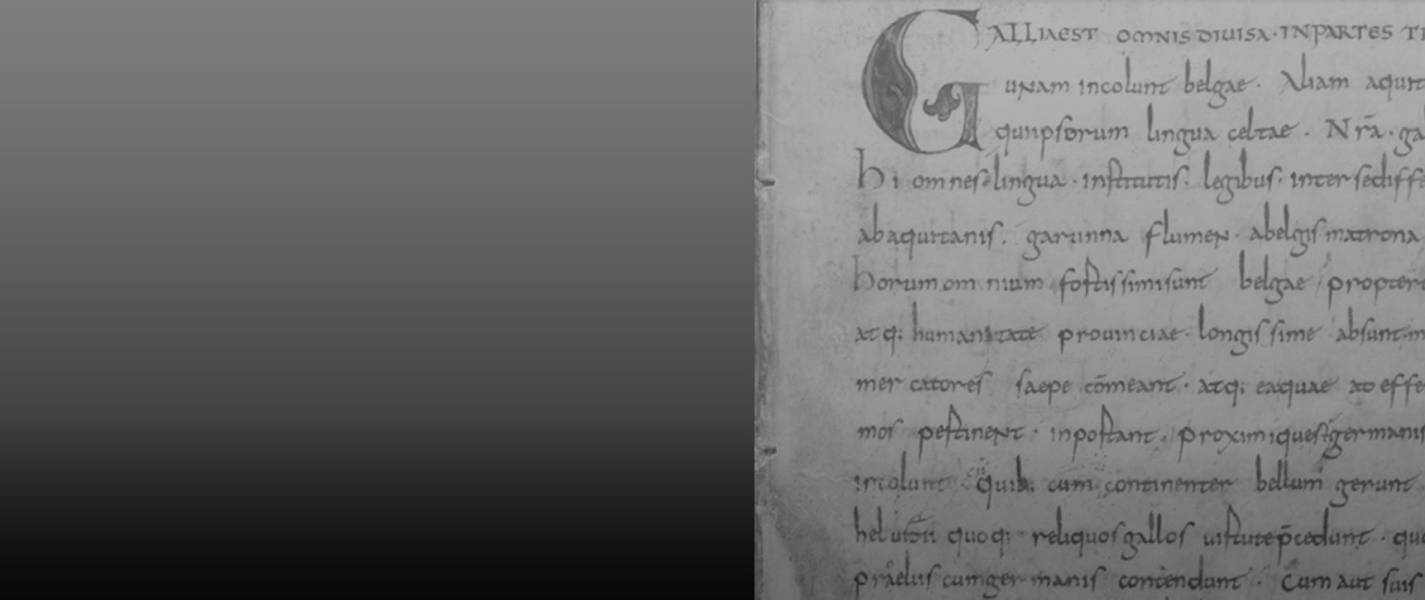 GALLIAEST OMNIS DIUISA · INPARTES
unam incolunt belgae · Aliam
quiipsorum lingua celtae · Nrā · ga
hi omnes lingua · institutis · legibus · inter sediffe
abaquitanis . garunna flumen · abelgis matrona
horum om nium fortissimisunt belgae propter
atq; humanitate prouinciae · longissime absunt
mer catores saepe cōmeant · atq; eaquae ad effe
mos pertinent · inportant . proximiquesţgermanis
incolunt quib; cum continenter bellum gerunt
quoq; reliquosgallos uirtutep̄cedunt · quo
praeliis cumger manis contendunt · Cum aut suis